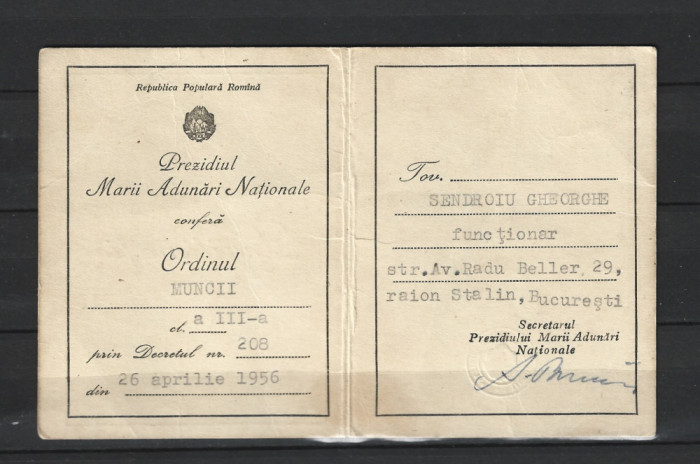 Republica Populară Romînă
Prezidiul
Marii Adunări Naționale
conferă
Ordinul
MUNCII
cl. a III-a
prin Decretul nr. 208
din 26 aprilie 1956
Tov.
SENDROIU GHEORGHE
funcţionar
str.Av.Radu Beller 29,
raion Stalin, Bucureşti
Secretarul
Prezidiului Marii Adunări
Naționale